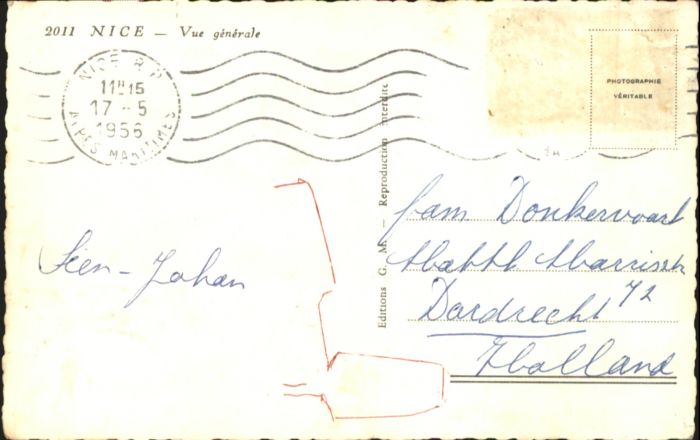 2011 NICE — Vue générale
NICE R.P.
11H15
17 - 5
1956
ALPES MARITIMES
PHOTOGRAPHIE
VÉRITABLE
Editions G. M. - Reproduction interdite
Sien - Johan
fam Donkervoort
Matth
72
Dordrecht
Holland